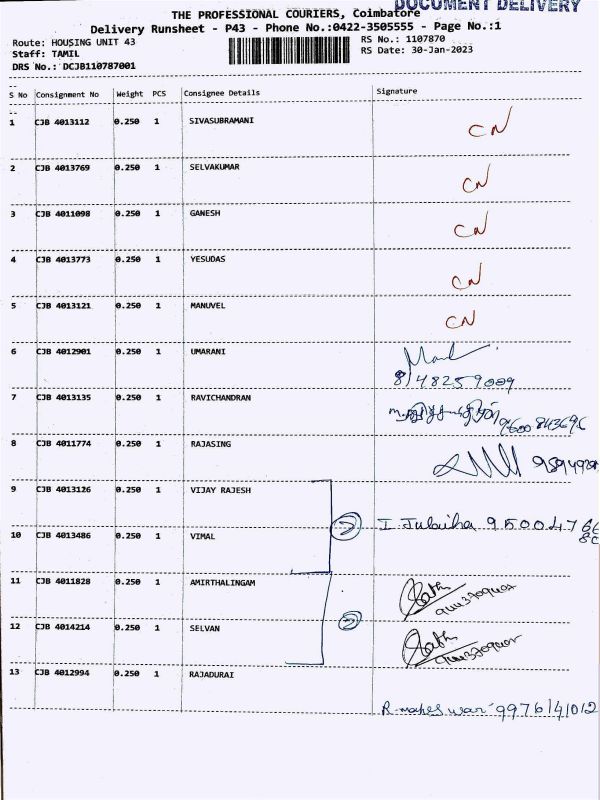 DOCUMENT DELIVERY
THE PROFESSIONAL COURIERS, Coimbatore
Delivery Runsheet - P43 - Phone No.:0422-3505555 - Page No.:1
Route: HOUSING UNIT 43 RS No.: 1107870
Staff: TAMIL RS Date: 30-Jan-2023
DRS No.: DCJB110787001
S No Consignment No Weight PCS Consignee Details Signature
1 CJB 4013112 0.250 1 SIVASUBRAMANI CN
2 CJB 4013769 0.250 1 SELVAKUMAR CN
3 CJB 4011098 0.250 1 GANESH CN
4 CJB 4013773 0.250 1 YESUDAS CN
5 CJB 4013121 0.250 1 MANUVEL CN
6 CJB 4012901 0.250 1 UMARANI
8148259009
7 CJB 4013135 0.250 1 RAVICHANDRAN
9600843696
8 CJB 4011774 0.250 1 RAJASING
9 CJB 4013126 0.250 1 VIJAY RAJESH
10 CJB 4013486 0.250 1 VIMAL
11 CJB 4011828 0.250 1 AMIRTHALINGAM
12 CJB 4014214 0.250 1 SELVAN
13 CJB 4012994 0.250 1 RAJADURAI
R. maheswari 9976141012